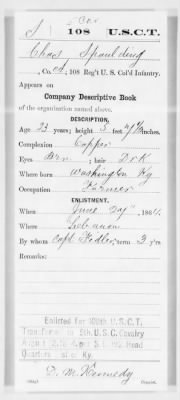 5 Cav
S 108 U.S.C.T.
Chas Spaulding
, Co. , 108 Reg't U. S. Col'd Infantry.
Appears on
Company Descriptive Book
of the organization named above.
DESCRIPTION.
Age 23 years; height 5 feet inches.
Complexion Copper
Eyes Brn ; hair Drk
Where born Washington Ky
Occupation Farmer
ENLISTMENT.
When June , 1864.
Where Lebanon
By whom Capt Fidler ; term 3 y'rs
Remarks:
Enlisted for 108th U.S.C.T.
Transferred to 5th. U.S.C. Cavalry
Head
Quarters Ky.
D. M. Kennedy